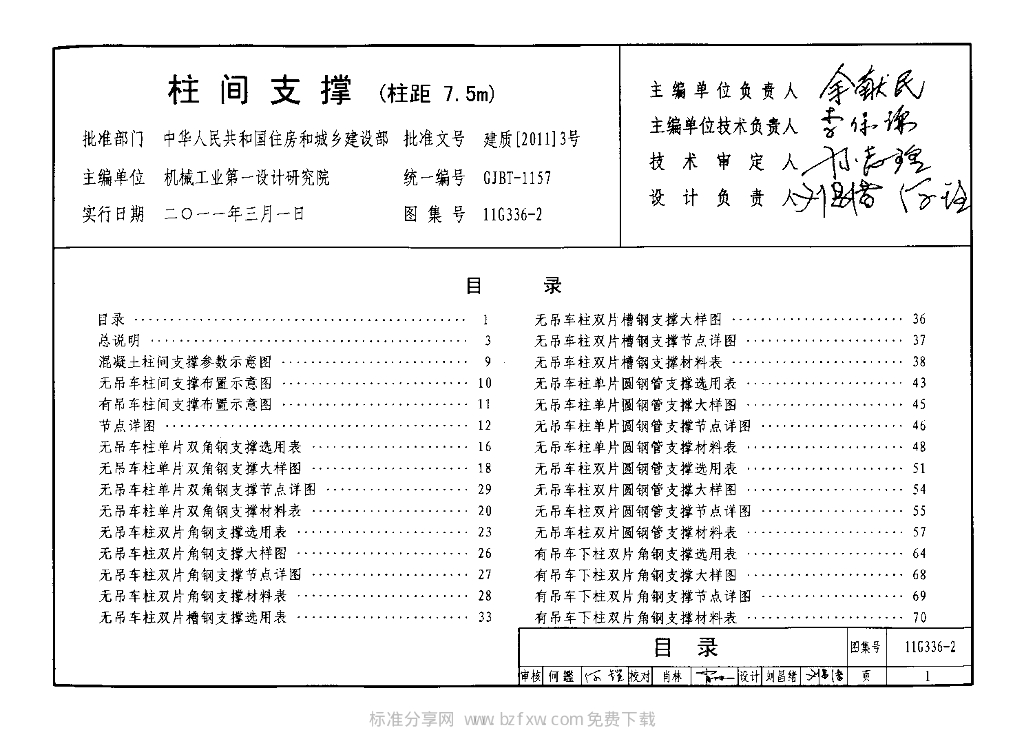 柱间支撑 (柱距 7.5m)
批准部门 中华人民共和国住房和城乡建设部 批准文号 建质[2011]3号
主编单位 机械工业第一设计研究院 统一编号 GJBT-1157
实行日期 二〇一一年三月一日 图集号 11G336-2
主编单位负责人 余献民
主编单位技术负责人
技术审定人
设计负责人
目录
目录 1
总说明 3
混凝土柱间支撑参数示意图 9
无吊车柱间支撑布置示意图 10
有吊车柱间支撑布置示意图 11
节点详图 12
无吊车柱单片双角钢支撑选用表 16
无吊车柱单片双角钢支撑大样图 18
无吊车柱单片双角钢支撑节点详图 29
无吊车柱单片双角钢支撑材料表 20
无吊车柱双片角钢支撑选用表 23
无吊车柱双片角钢支撑大样图 26
无吊车柱双片角钢支撑节点详图 27
无吊车柱双片角钢支撑材料表 28
无吊车柱双片槽钢支撑选用表 33
无吊车柱双片槽钢支撑大样图 36
无吊车柱双片槽钢支撑节点详图 37
无吊车柱双片槽钢支撑材料表 38
无吊车柱单片圆钢管支撑选用表 43
无吊车柱单片圆钢管支撑大样图 45
无吊车柱单片圆钢管支撑节点详图 46
无吊车柱单片圆钢管支撑材料表 48
无吊车柱双片圆钢管支撑选用表 51
无吊车柱双片圆钢管支撑大样图 54
无吊车柱双片圆钢管支撑节点详图 55
无吊车柱双片圆钢管支撑材料表 57
有吊车下柱双片角钢支撑选用表 64
有吊车下柱双片角钢支撑大样图 68
有吊车下柱双片角钢支撑节点详图 69
有吊车下柱双片角钢支撑材料表 70
目录 图集号 11G336-2
审核 何鑑 校对 肖林 设计 刘昌绪 页 1
标准分享网 www.bzfxw.com 免费下载